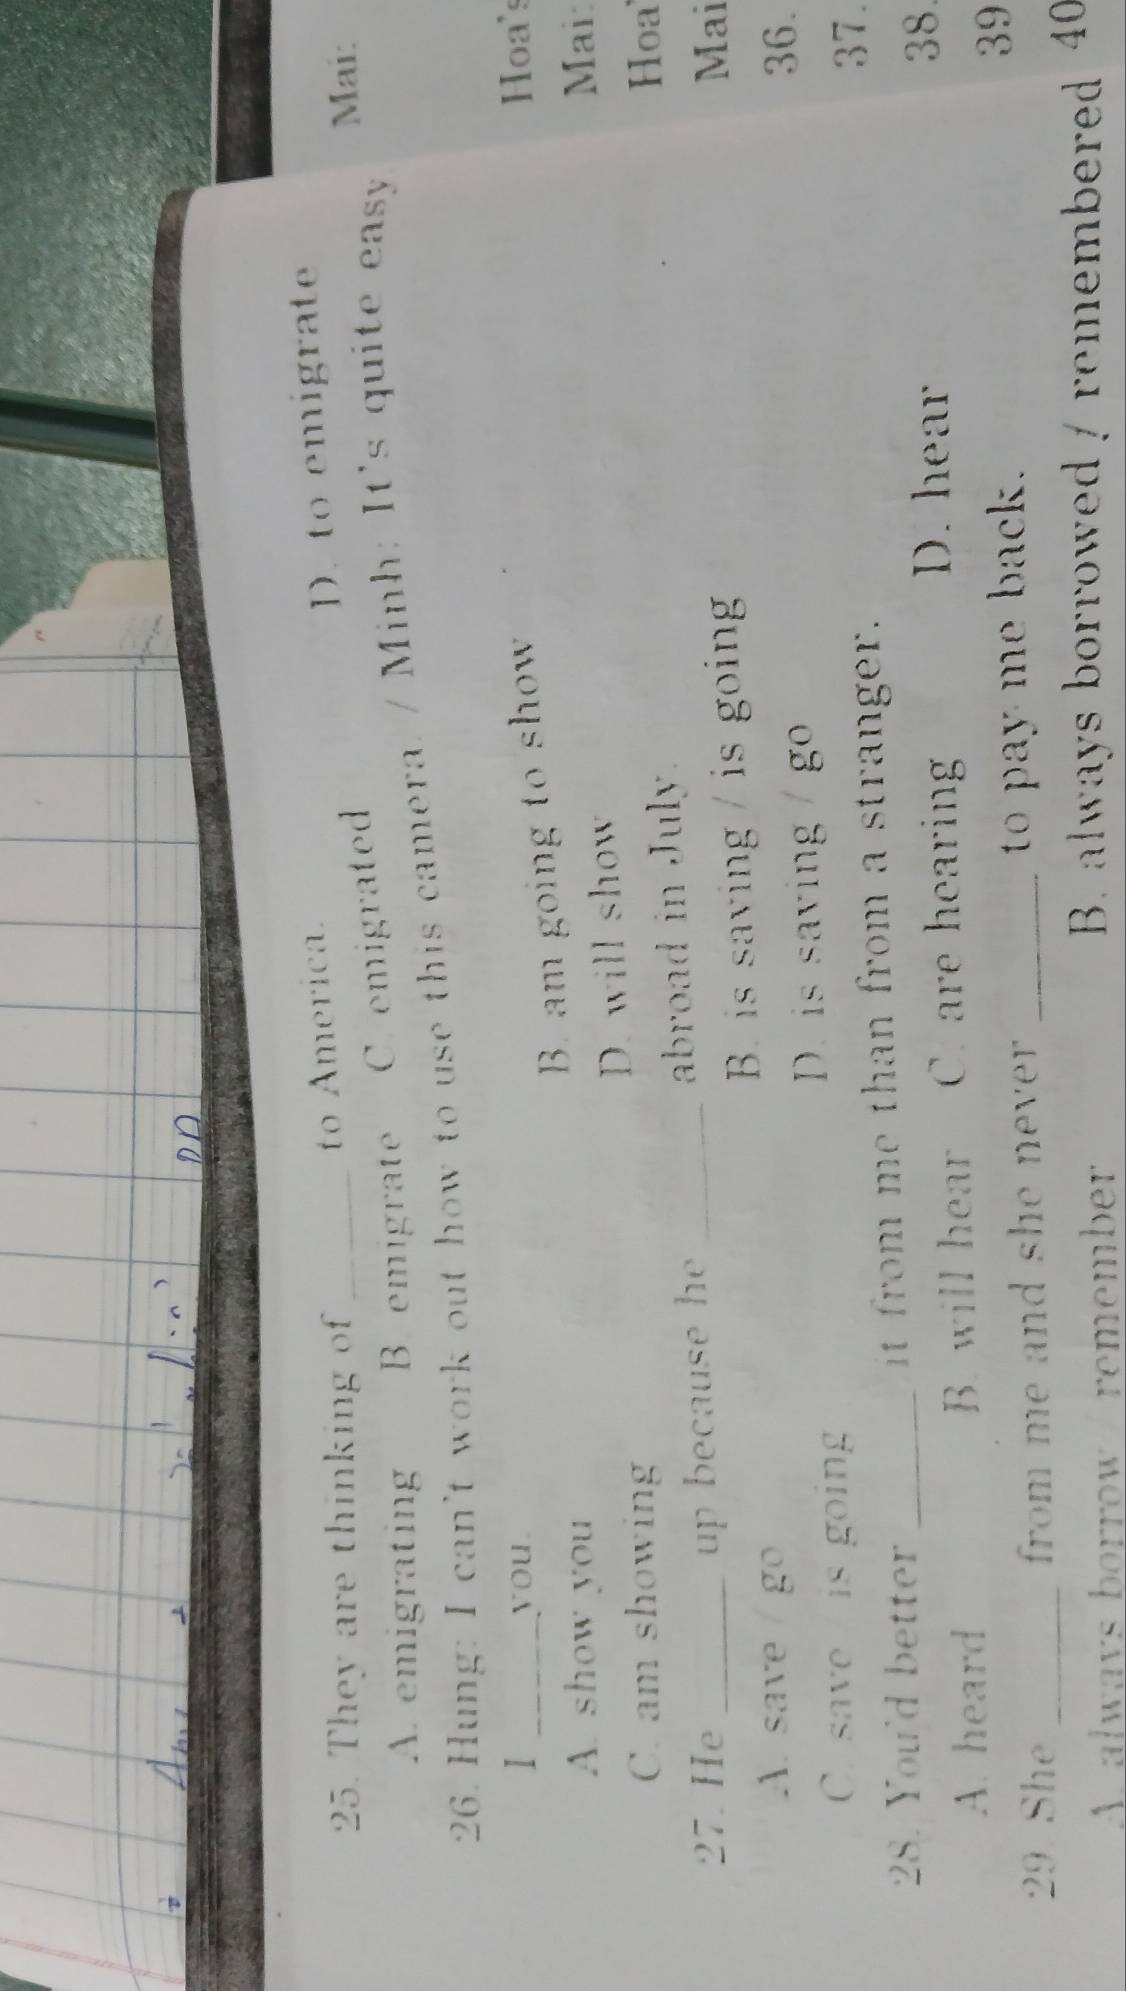 25. They are thinking of ______ to America.
A. emigrating B. emigrate C. emigrated D. to emigrate
26. Hung: I can't work out how to use this camera. / Minh: It's quite easy.
I ______ you.
A. show you B. am going to show
C. am showing D. will show
27. He ______ up because he ______ abroad in July.
A. save / go B. is saving / is going
C. save / is going D. is saving / go
28. You'd better ______ it from me than from a stranger.
A. heard B. will hear C. are hearing D. hear
29. She ______ from me and she never ______ to pay me back.
A. always borrow / remember B. always borrowed / remembered
Mai:
Hoa's
Mai:
Hoa'
Mai
36.
37.
38.
39
40